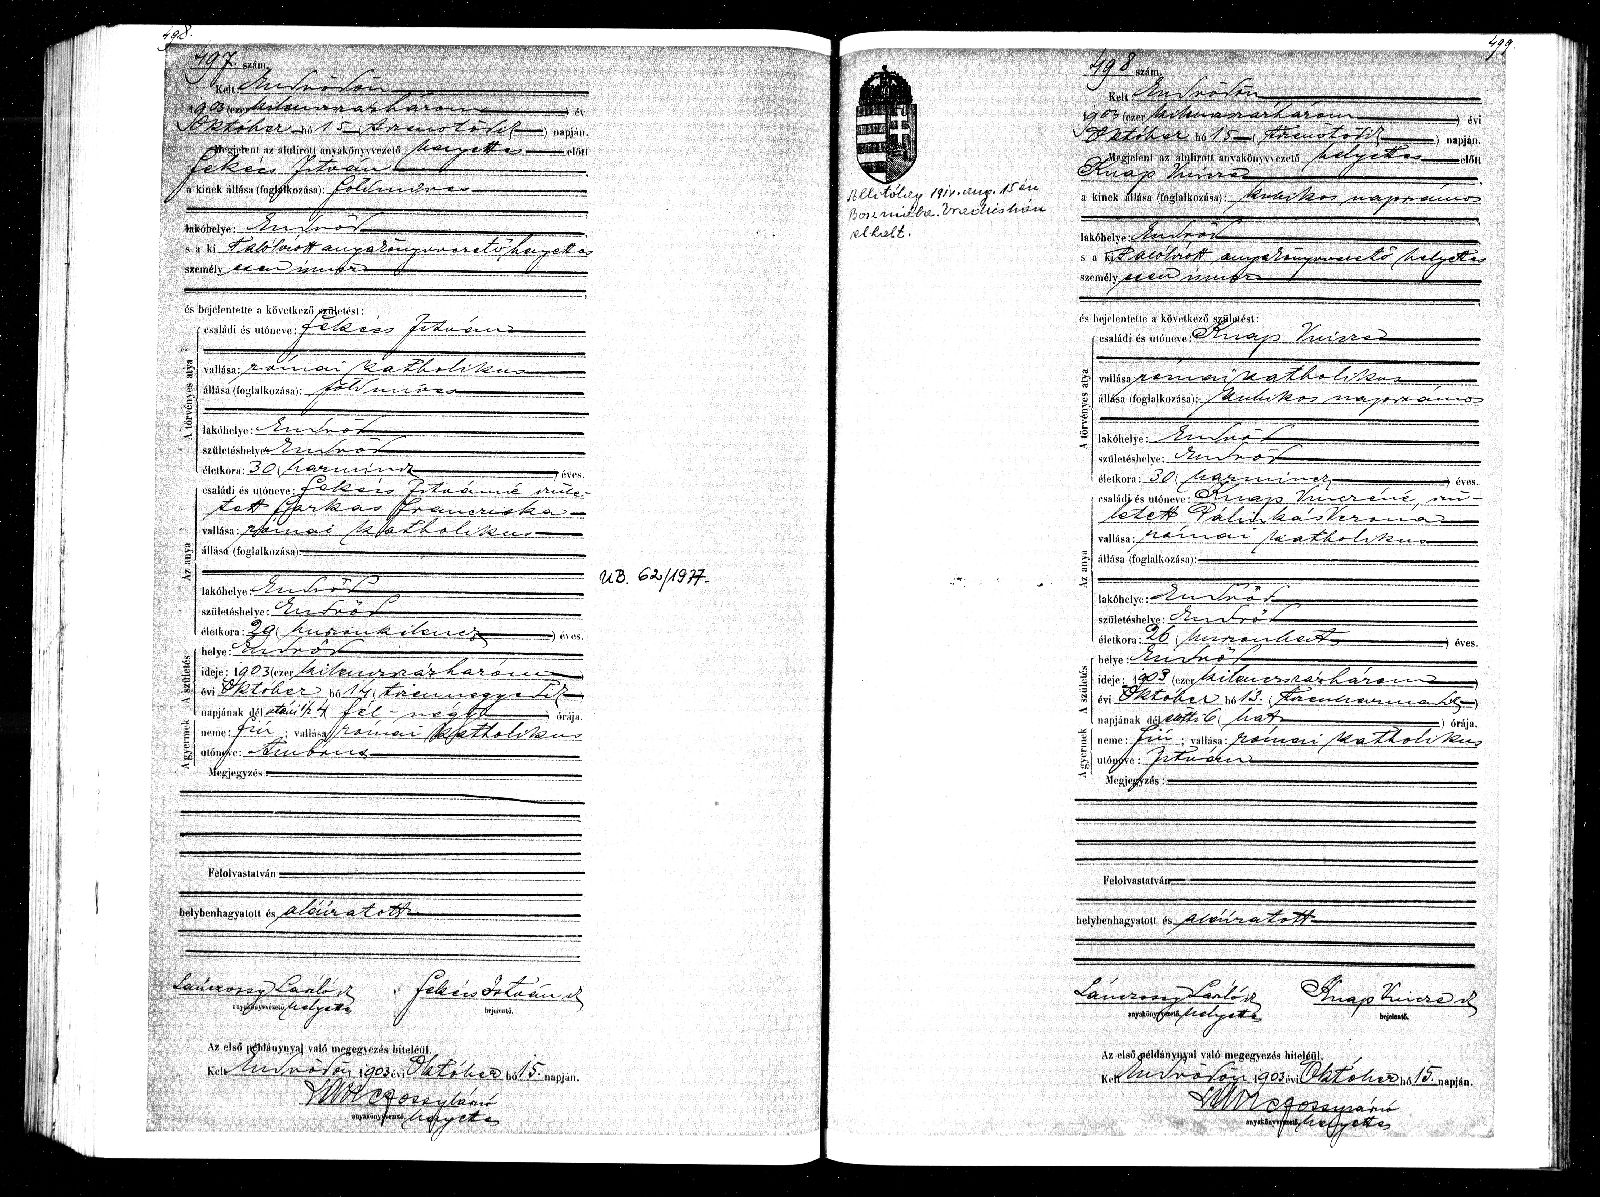 498.
497. szám.
Kelt Endrődön
1903 (ezer kilencszázhárom) évi
Október hó 15 (tizenötödik) napján.
Megjelent az alulirott anyakönyvvezető helyettes előtt
Fekécs István
a kinek állása (foglalkozása): földmives
lakóhelye: Endrőd
s a ki alólirott anyakönyvvezető helyettes
személyesen ismer
és bejelentette a következő születést:
A törvényes atya
családi és utóneve: Fekécs István
vallása: római katholikus
állása (foglalkozása): földmives
lakóhelye: Endrőd
születéshelye: Endrőd
életkora: 30 (harmincz) éves.
Az anya
családi és utóneve: Fekécs Istvánné szüle-
tett Farkas Francziska
vallása: római katholikus
állása (foglalkozása):
lakóhelye: Endrőd
születéshelye: Endrőd
életkora: 29 (huszonkilencz) éves.
A születés
helye: Endrőd
ideje: 1903 (ezer kilencszázhárom)
évi Október hó 14 (tizennegyedik)
napjának dél utáni 1/2 4 (fél-négy) órája.
A gyermek
neme: fiú; vallása: római katholikus
utóneve: Ambrus
Megjegyzés:
Felolvastatván
helybenhagyatott és aláiratott
Lánczossy László
anyakönyvvezető helyettes
Fekécs István
bejelentő.
Az első példánynyal való megegyezés hiteléül.
Kelt Endrődön 1903 évi Október hó 15. napján.
Lánczossy László
anyakönyvvezető helyettes
UB. 62/1977.
499.
Bosniába
elhalt.
498 szám.
Kelt Endrődön
1903 (ezer kilencszázhárom) évi
Október hó 15 (tizenötödik) napján.
Megjelent az alulirott anyakönyvvezető helyettes előtt
Knap Vincze
a kinek állása (foglalkozása): kubikos napszámos
lakóhelye: Endrőd
s a ki alólirott anyakönyvvezető helyettes
személyesen ismer
és bejelentette a következő születést:
A törvényes atya
családi és utóneve: Knap Vincze
vallása római katholikus
állása (foglalkozása): kubikos napszámos
lakóhelye: Endrőd
születéshelye: Endrőd
életkora: 30 (harmincz) éves.
Az anya
családi és utóneve: Knap Vinczéné, szü-
letett Pálinkás Verona
vallása: római katholikus
állása (foglalkozása):
lakóhelye: Endrőd
születéshelye: Endrőd
életkora: 26 (huszonhat) éves.
A születés
helye: Endrőd
ideje: 1903 (ezer kilencszázhárom)
évi Október hó 13. (tizenharmadik)
napjának dél előtti 6 (hat) órája.
A gyermek
neme: fiú; vallása: római katholikus
utóneve: István
Megjegyzés:
Felolvastatván
helybenhagyatott és aláiratott
Lánczossy László
anyakönyvvezető helyettes
Knap Vincze
bejelentő.
Az első példánynyal való megegyezés hiteléül.
Kelt Endrődön 1903 évi Október hó 15. napján.
Lánczossy László
anyakönyvvezető helyettes